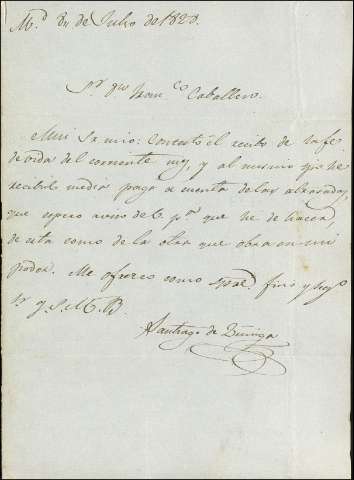 M.d de Julio de 1820.
S.r Fran.co Caballero.
Muy Sr. mio: Contesto el recibo de la fe
de vida del corriente mes, y al mismo
recibí media paga a cuenta de las atrasadas,
que espero aviso de V. p.a que he de hacer,
de esta como de la otra que obra en mi
poder. Me ofrezco como fino y
q. S. M. B.
Santiago de Zúñiga